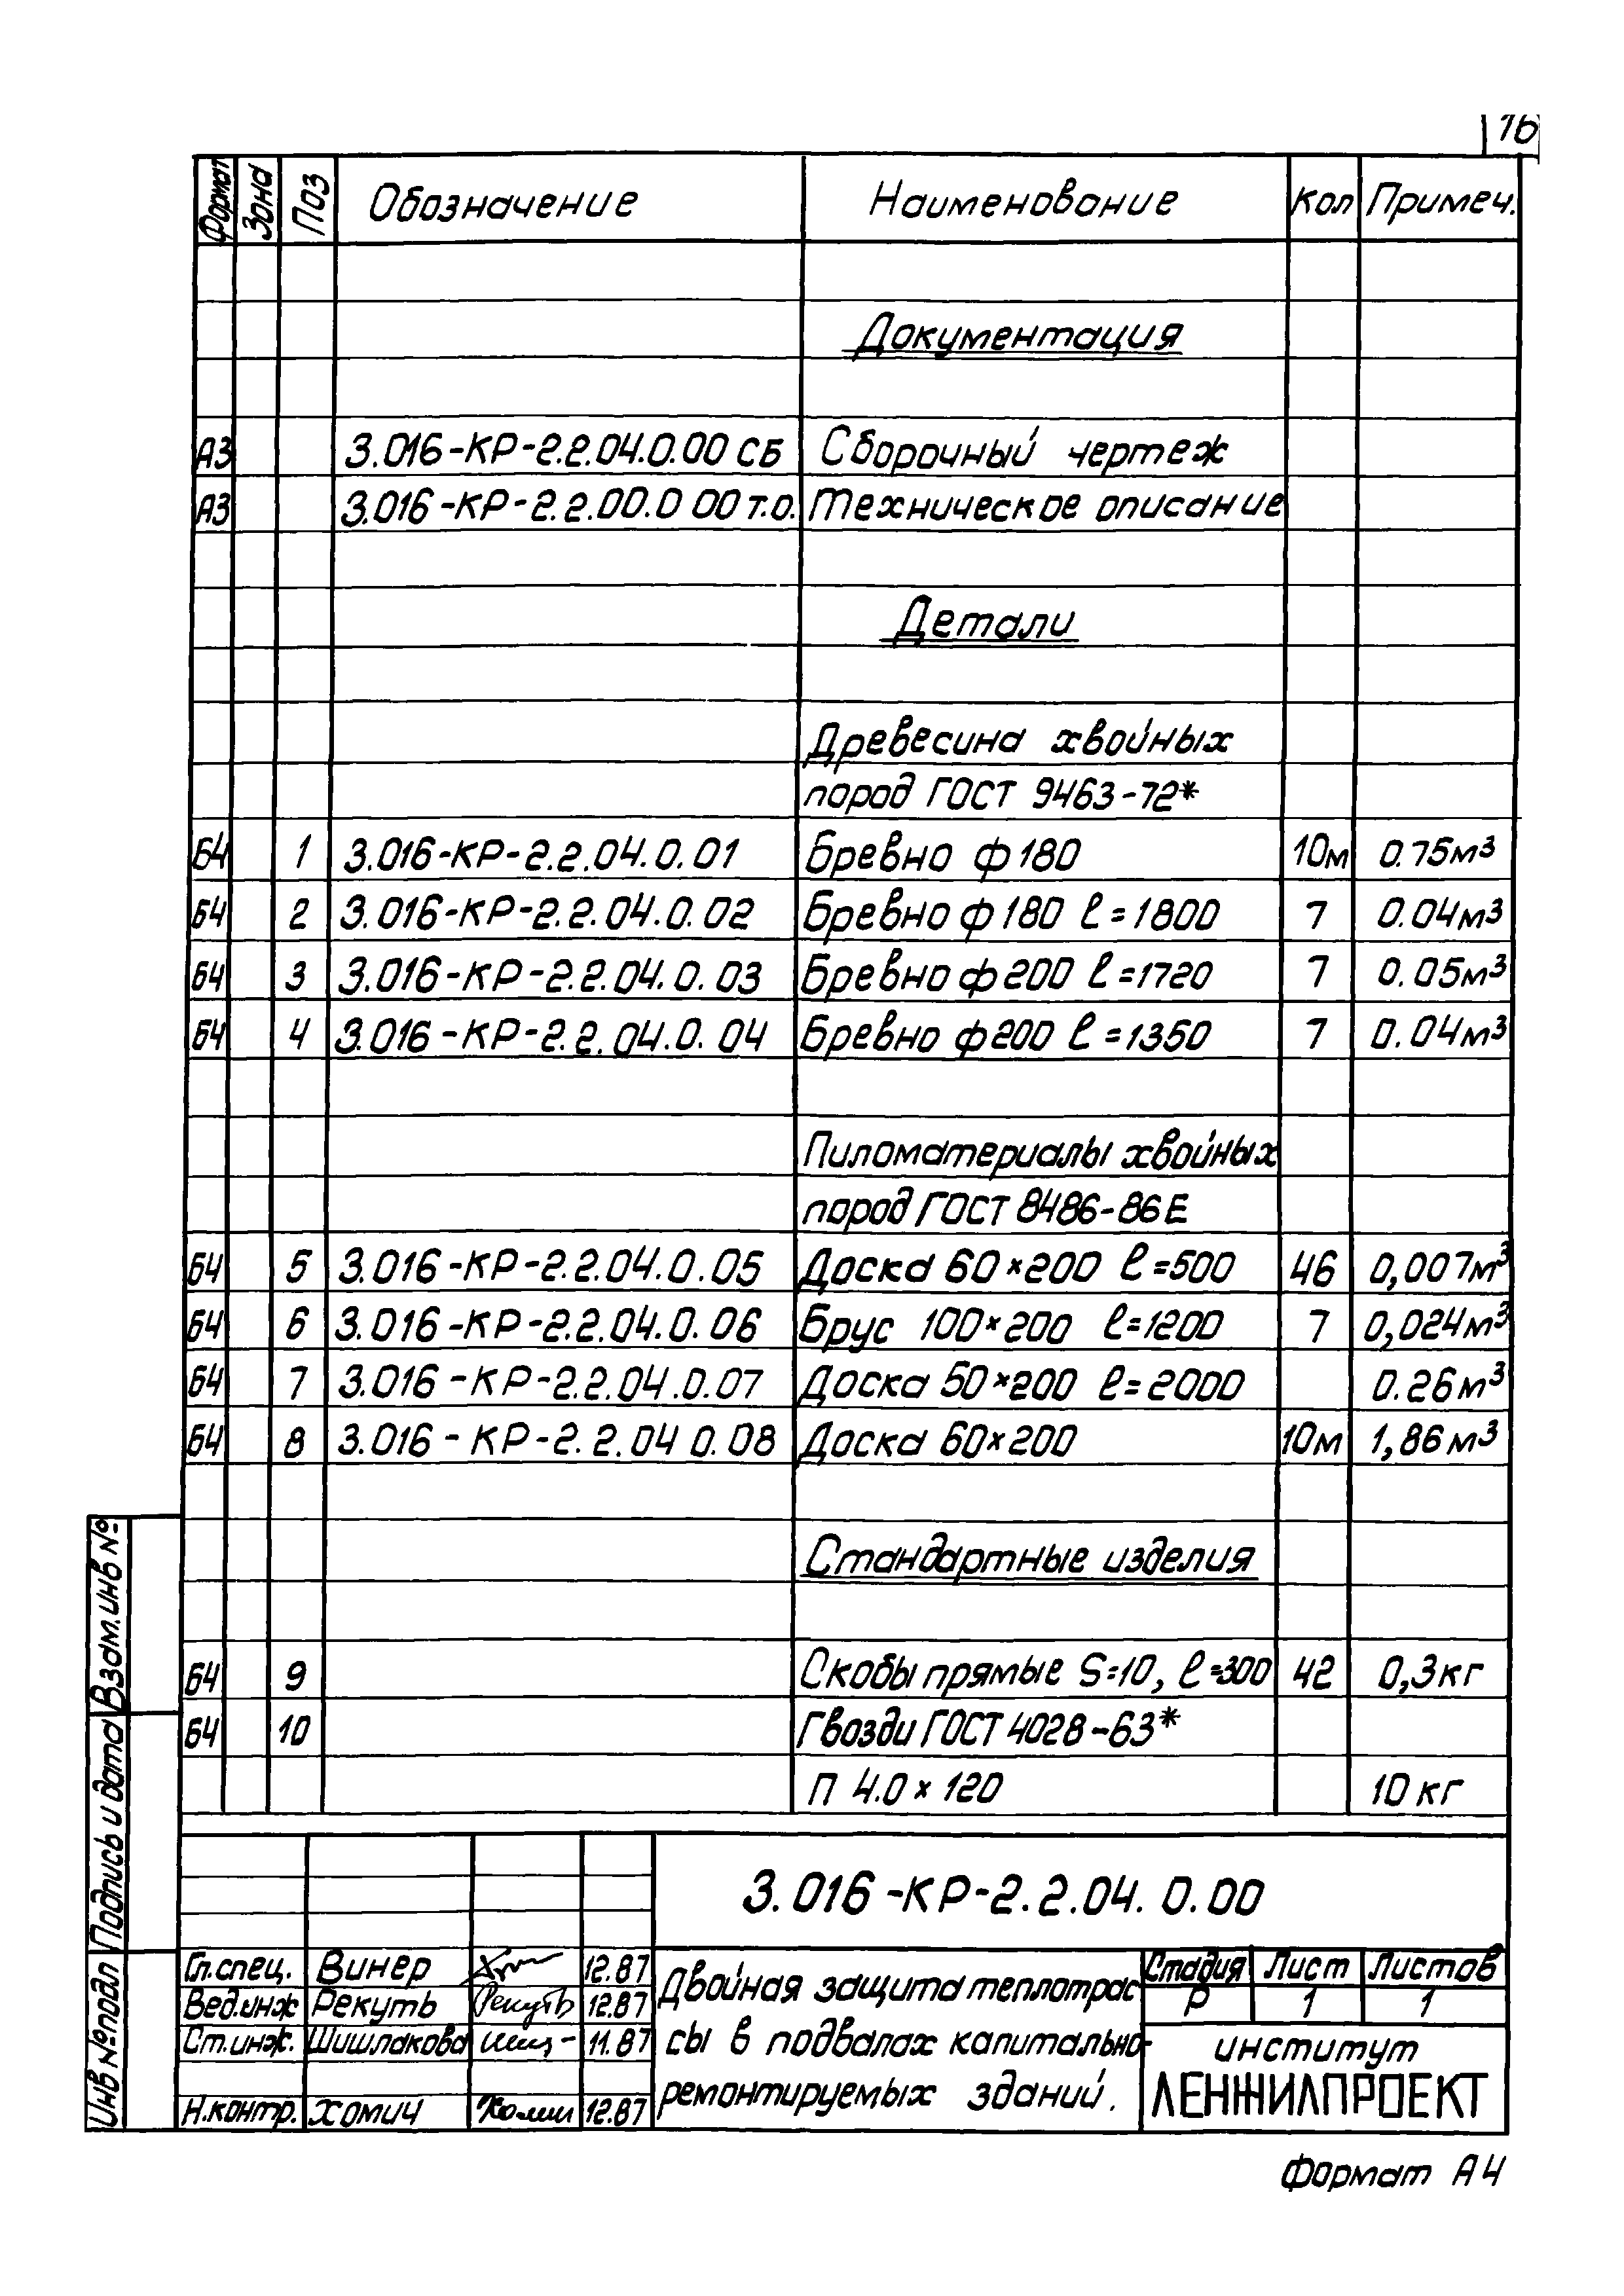 16
Формат Зона Поз Обозначение Наименование Кол Примеч.
Документация
А3 3.016-КР-2.2.04.0.00 СБ Сборочный чертеж
А3 3.016-КР-2.2.00.0 00 т.о. Техническое описание
Детали
Древесина хвойных
пород ГОСТ 9463-72*
Б4 1 3.016-КР-2.2.04.0.01 Бревно ф180 10м 0.75м³
Б4 2 3.016-КР-2.2.04.0.02 Бревно ф180 ℓ=1800 7 0.04м³
Б4 3 3.016-КР-2.2.04.0.03 Бревно ф200 ℓ=1720 7 0.05м³
Б4 4 3.016-КР-2.2.04.0.04 Бревно ф200 ℓ=1350 7 0.04м³
Пиломатериалы хвойных
пород ГОСТ 8486-86Е
Б4 5 3.016-КР-2.2.04.0.05 Доска 60×200 ℓ=500 46 0,007м³
Б4 6 3.016-КР-2.2.04.0.06 Брус 100×200 ℓ=1200 7 0,024м³
Б4 7 3.016-КР-2.2.04.0.07 Доска 50×200 ℓ=2000 0.26м³
Б4 8 3.016-КР-2.2.04 0.08 Доска 60×200 10м 1,86м³
Стандартные изделия
Б4 9 Скобы прямые S=10, ℓ=300 42 0,3кг
Б4 10 Гвозди ГОСТ 4028-63*
П 4.0×120 10кг
Взам.инв №
Подпись и дата
Инв №подл
3.016-КР-2.2.04.0.00
Гл.спец. Винер 12.87
Вед.инж Рекуть Рекуть 12.87
Ст.инж. Шишлакова 11.87
Н.контр. Хомич Хомич 12.87
Двойная защита теплотрас
сы в подвалах капитально-
ремонтируемых зданий.
Стадия Лист Листов
Р 1 1
институт
ЛЕНЖИЛПРОЕКТ
Формат А4